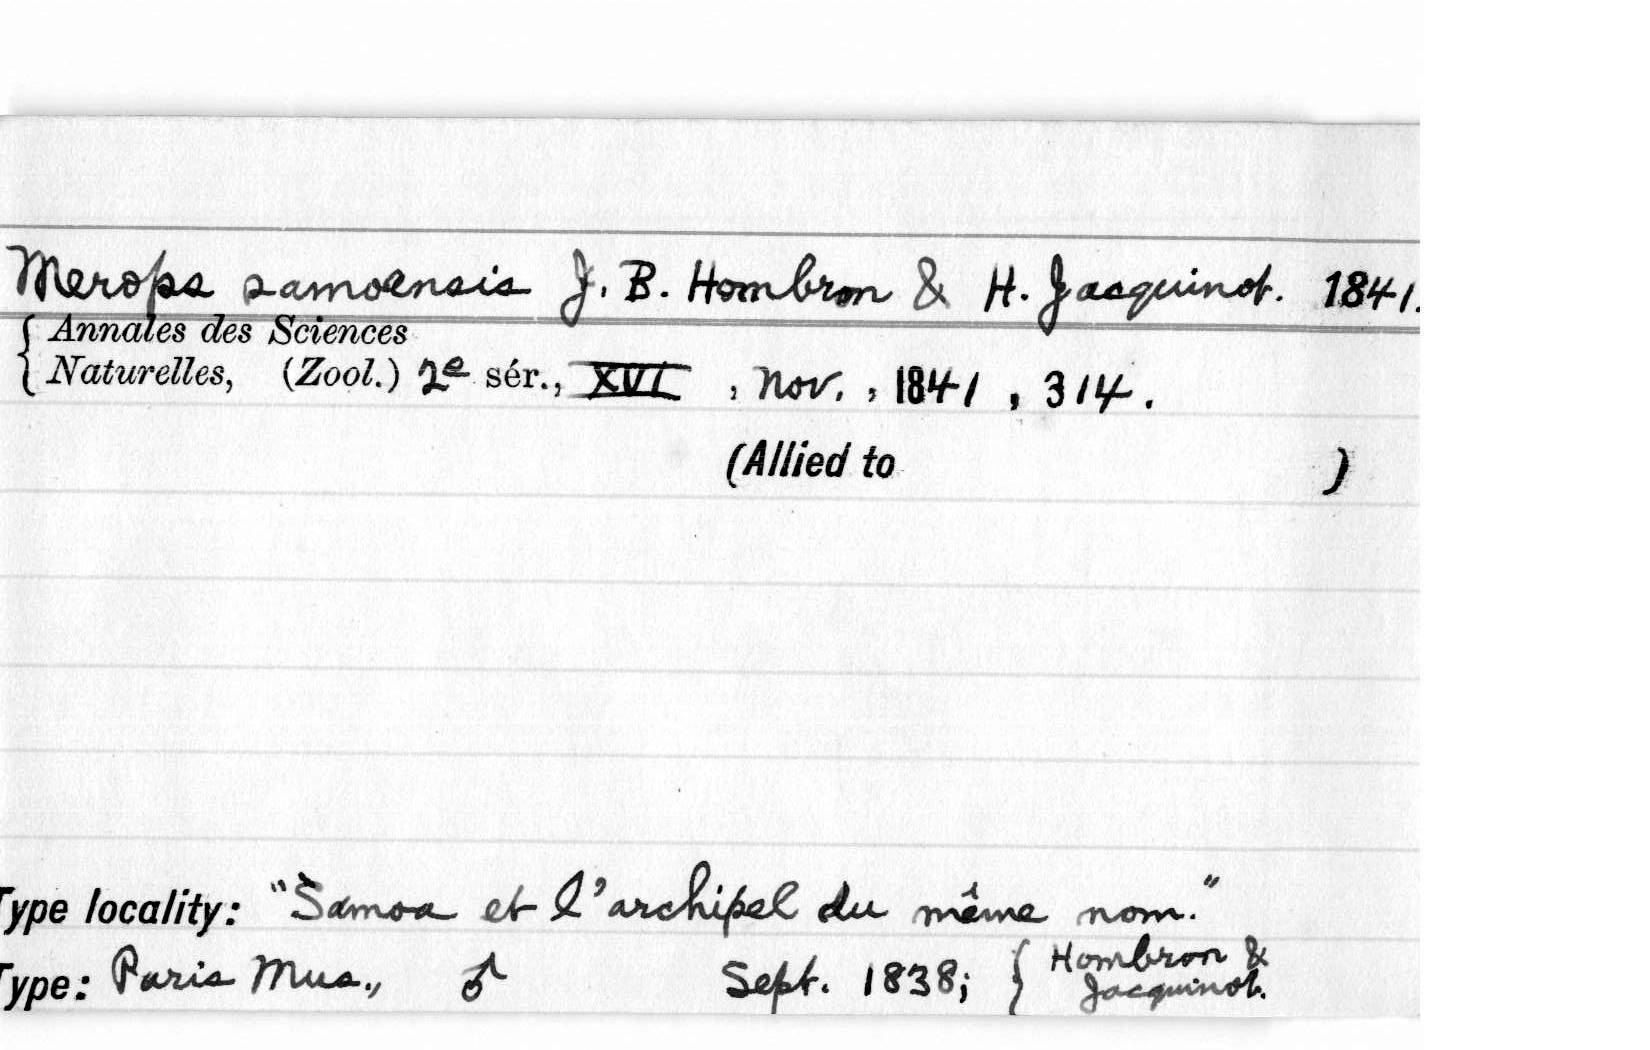 Merops samoensis J. B. Hombron & H. Jacquinot. 1841.
{ Annales des Sciences
Naturelles, (Zool.) 2e sér., XVI , Nov. , 1841 , 314 .
(Allied to )
Type locality: "Samoa et l'archipel du même nom."
Type: Paris Mus., ♂ Sept. 1838; { Hombron &
Jacquinot.